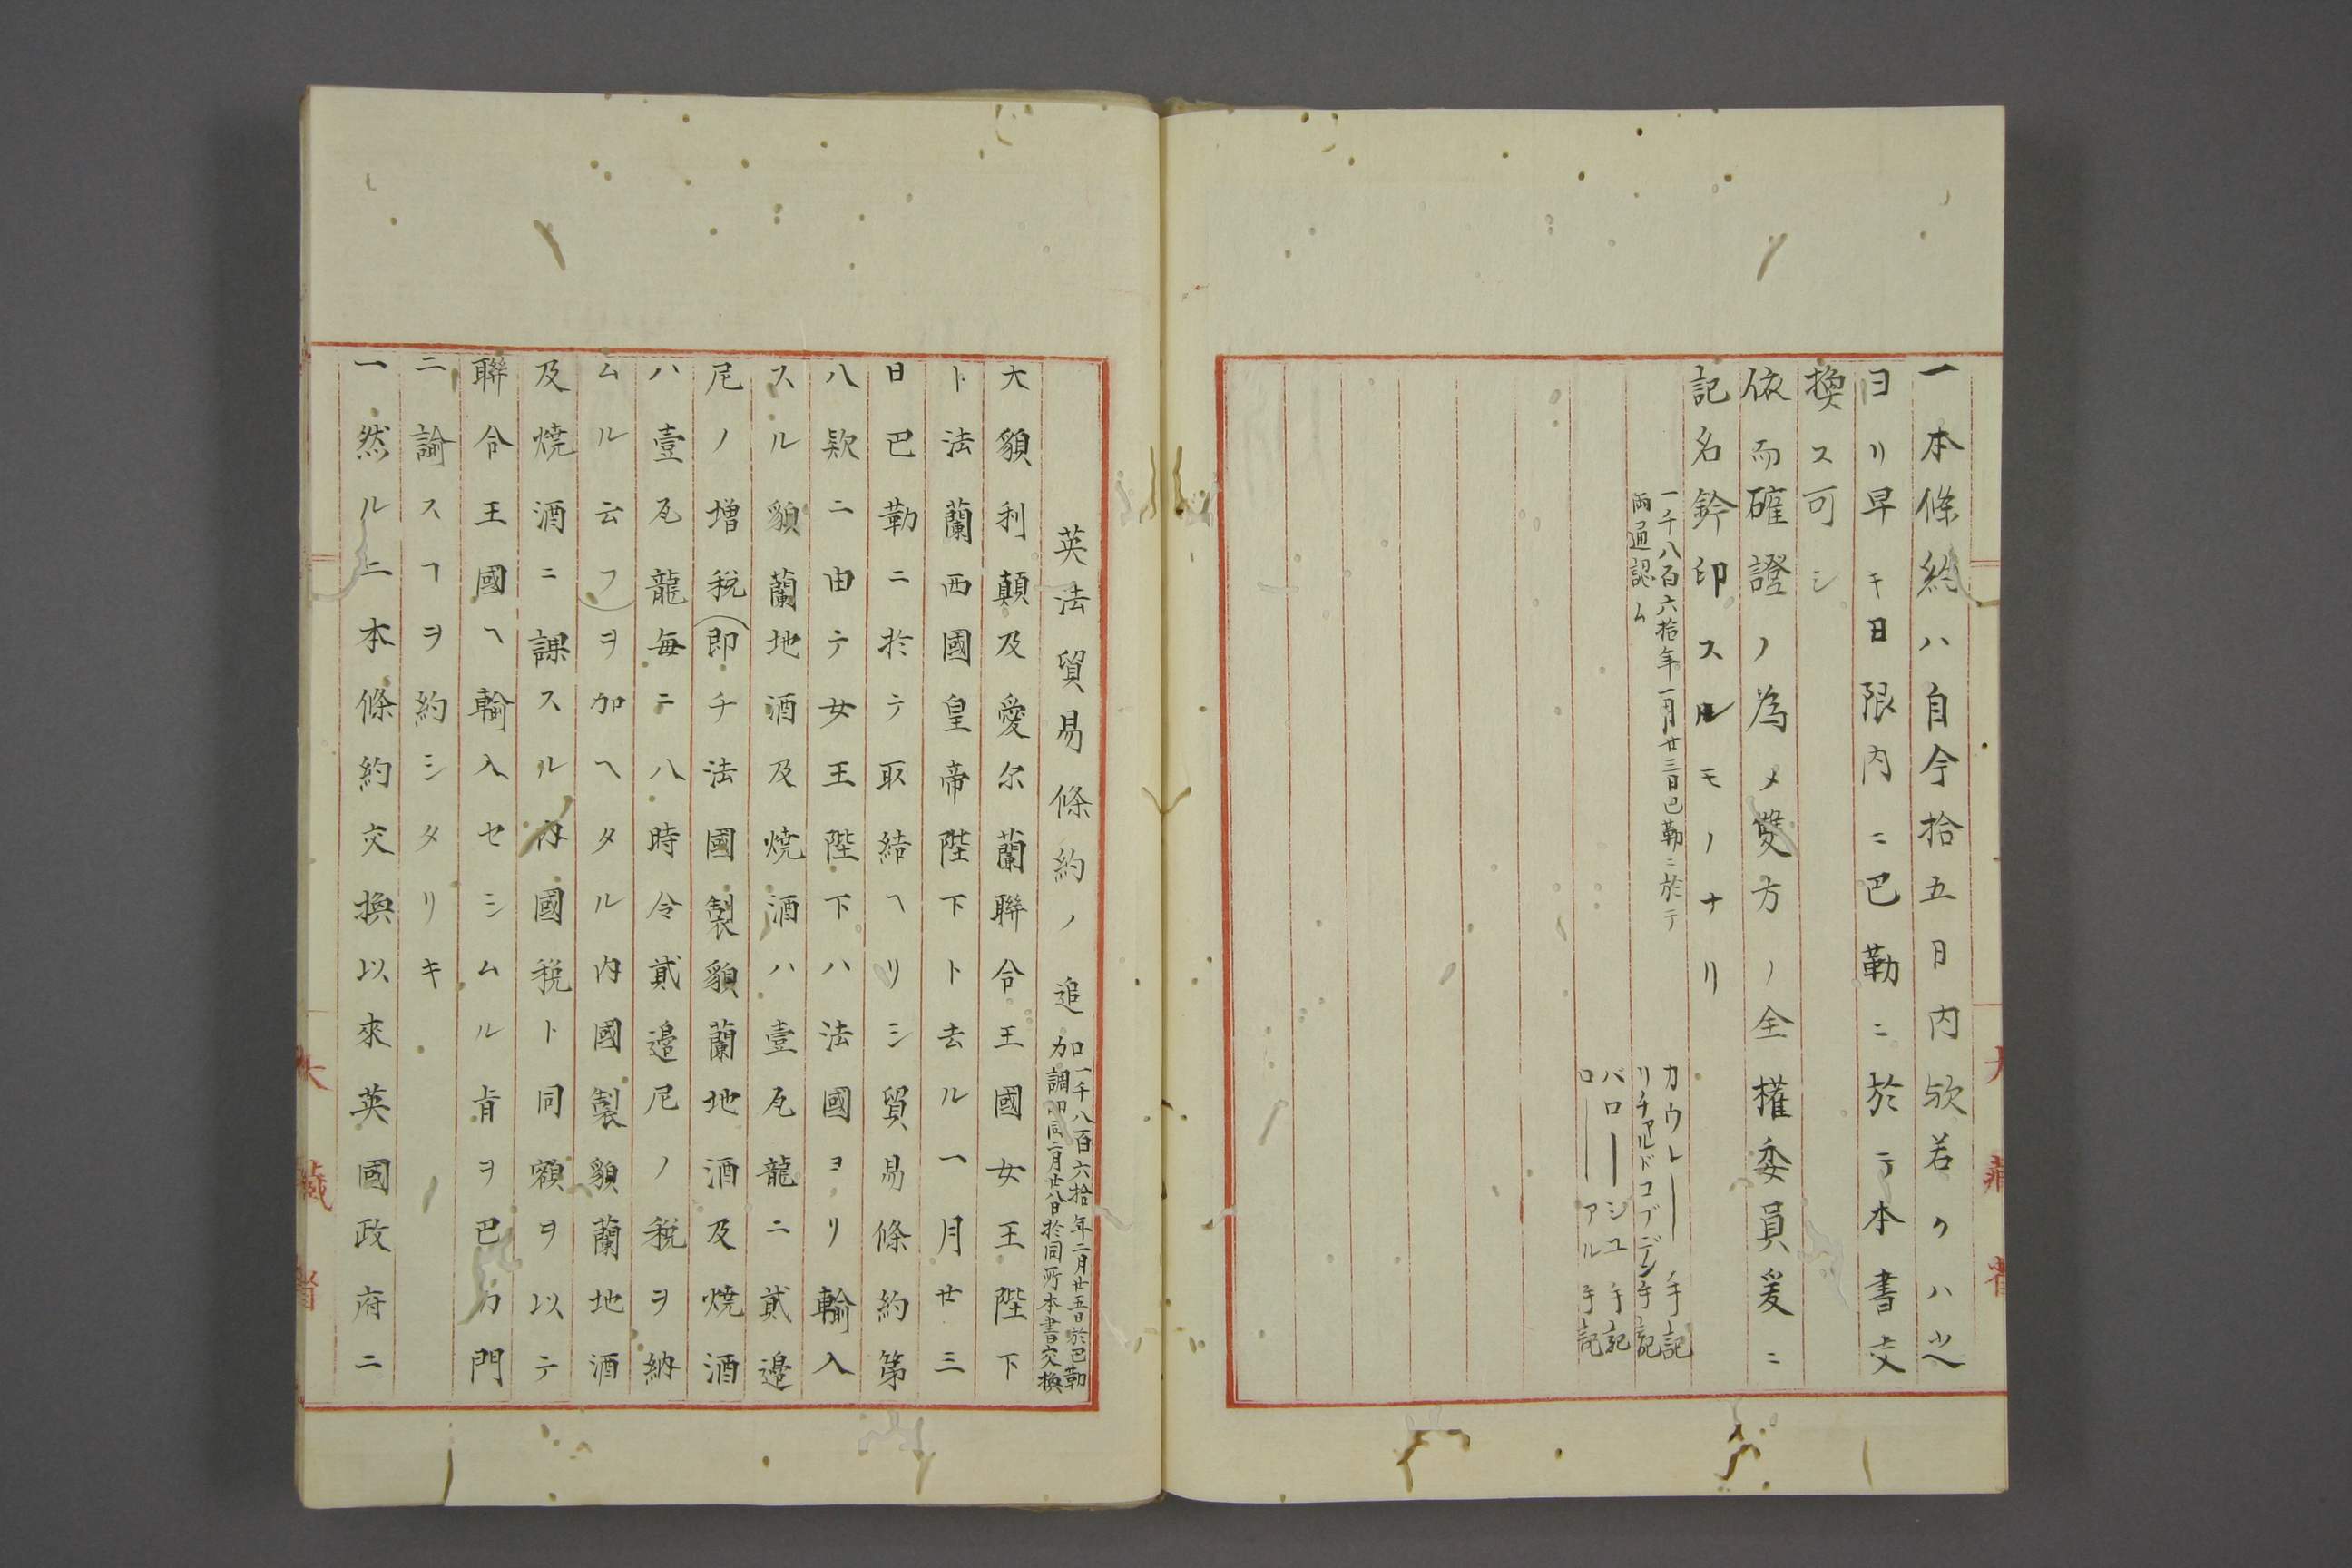 一本條約ハ自今拾五日内欤若クハ之
ヨリ早キ日限内ニ巴勒ニ於テ本書交
換ス可シ
依而確證ノ為メ雙方ノ全權委員爰ニ
記名鈐印スルモノナリ
一千八百六拾年一月廿三日巴勒ニ於テ
両通認ム
カウレー 手記
リチァルドコブデン手記
バロー シユ 手記
ロー アル 手記
大藏省
英法貿易條約ノ追加
一千八百六拾年二月廿五日於巴勒
調印同二月廿八日於同所本書交換
大貌利顛及愛尔蘭聯合王國女王陛下
ト法蘭西國皇帝陛下ト去ル一月廿三
日巴勒ニ於テ取結ヘリシ貿易條約第
八欵ニ由テ女王陛下ハ法國ヨリ輸入
スル貌蘭地酒及焼酒ハ壹瓦龍ニ貳邉
尼ノ増税(即チ法國製貌蘭地酒及焼酒
ハ壹瓦龍毎ニ八時令貳邉尼ノ税ヲ納
ムル云フ)ヲ加ヘタル内國製貌蘭地酒
及焼酒ニ課スル内國税ト同額ヲ以テ
聯合王國ヘ輸入セシムル肯ヲ巴力門
ニ諭スヿヲ約シタリキ
一然ルニ本條約交換以來英國政府ニ
大藏省